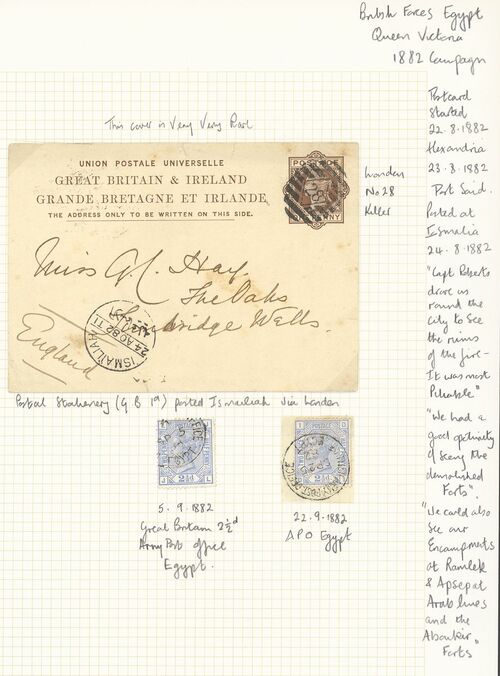 British Forces Egypt
Queen Victoria
1882 Campaign
This cover is Very Very Rare
UNION POSTALE UNIVERSELLE
GREAT BRITAIN & IRELAND
GRANDE BRETAGNE ET IRLANDE
THE ADDRESS ONLY TO BE WRITTEN ON THIS SIDE.
POSTAGE
PENNY
London
No 28
Killer
Miss G. C. Hay.
The Oaks
Tunbridge Wells.
England
ISMAILIAH
24 AO 82
Postal Stationery (G B 1d) posted Ismailiah via London
J L
2½
5. 9. 1882
Great Britain 2½d
Army Post Office
Egypt.
I D
BRITISH ARMY POST OFFICE
EGYPT
2½
22.9.1882
APO Egypt
Postcard
Started
22.8.1882
Alexandria
23.8.1882
Port Said.
Posted at
Ismalia
24.8.1882
"Capt Roberts
drove us
round the
city to see
the ruins
of the fire-
It was most
"We had a
good
of seeing the
demolished
Forts".
"We could also
see our
Encampments
at Ramleh
&
Arab lines
and the
Aboukir
Forts"